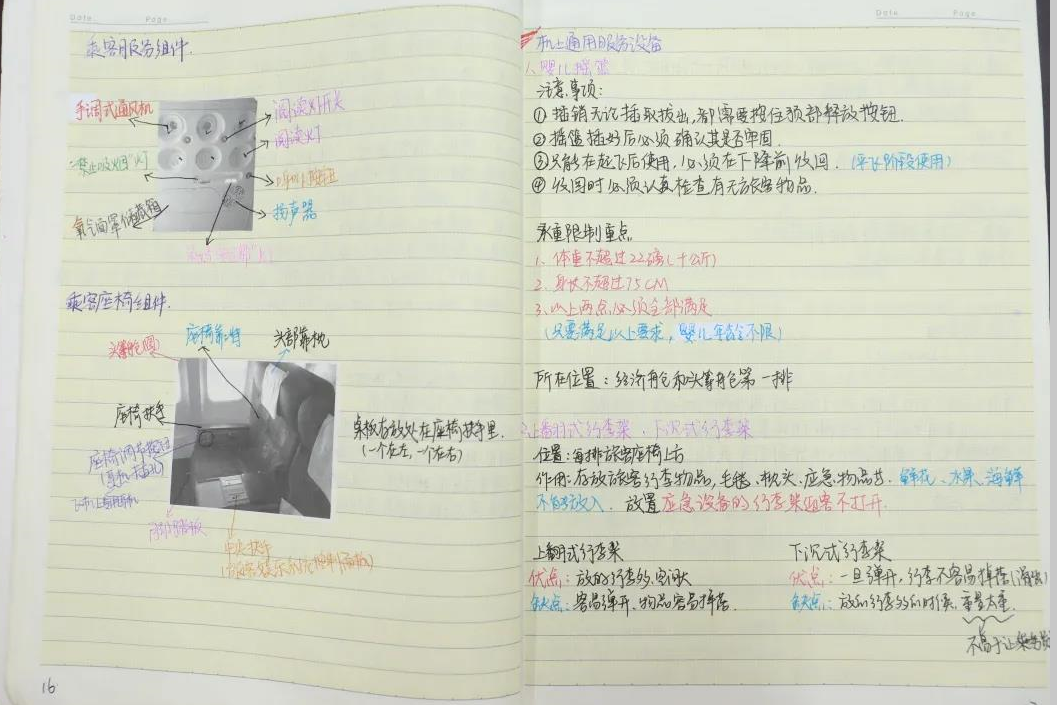 Date Page
乘客服务组件.
手调式通风机
阅读灯开关
阅读灯
"禁止吸烟"灯
呼叫按钮
扬声器
氧气面罩储藏箱
乘客座椅组件.
头等舱(圆)
座椅靠背
头部靠枕
座椅扶手
座椅调节按钮
桌板存放处在座椅扶手里.
(一个在左,一个在右)
中央扶手
16
Date Page
机上通用服务设备
1、婴儿摇篮
注意事项:
① 插销无论插取拔出,都需要按住顶部释放按钮.
② 摇篮插好后必须确认其是否牢固.
③ 只能在起飞后使用,必须在下降前收回. (平飞阶段使用)
④ 收回时必须认真检查有无旅客物品.
承重限制重点.
1、体重不超过22磅(十公斤)
2、身长不超过75CM
3、以上两点必须全部满足
(只要满足以上要求,婴儿年龄不限)
所在位置:经济舱和头等舱第一排
上翻式行李架、下沉式行李架
位置:每排旅客座椅上方
作用:存放旅客行李物品,毛毯、枕头、应急物品等. 鲜花、水果、海鲜
不能放入. 放置应急设备的行李架旅客不打开.
上翻式行李架 下沉式行李架
优点:放的行李多,空间大 优点:一旦弹开,行李不容易掉落
缺点:容易弹开,物品容易掉落. 缺点:放的行李多的时候,重量太重.